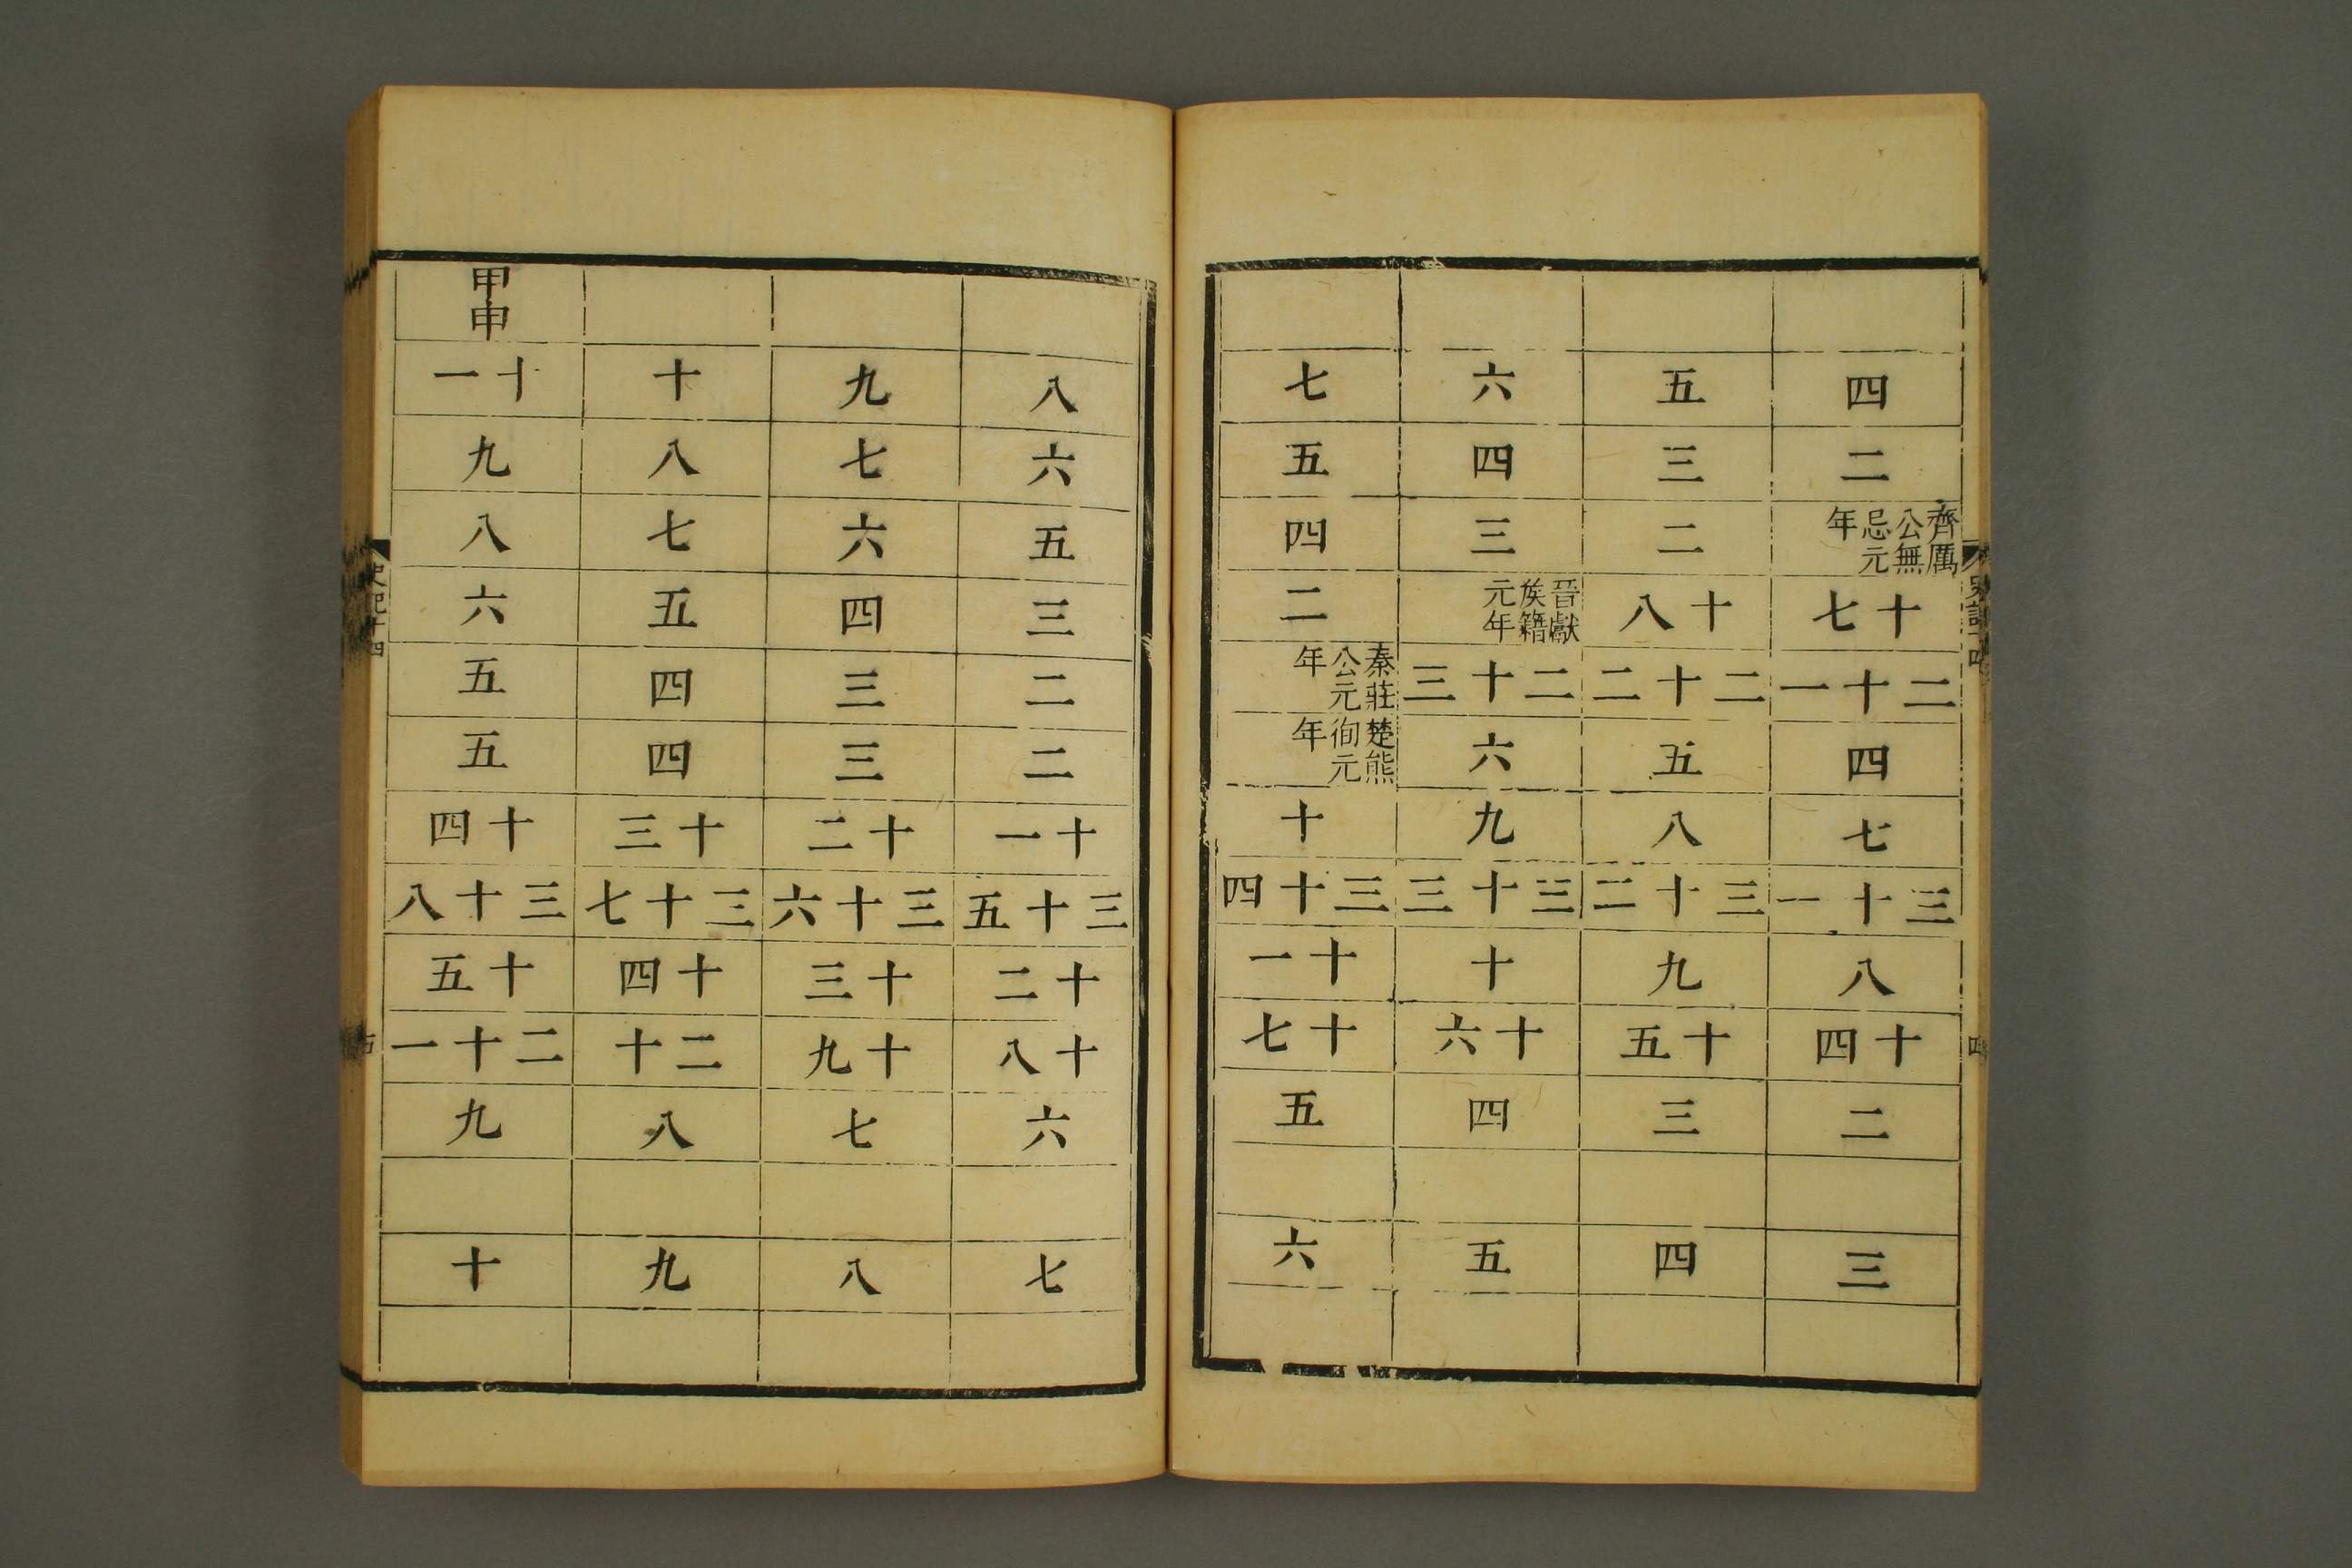 四
二
齊厲公無忌元年
十七
二十一
四
七
三十一
八
十四
二
三
五
三
二
十八
二十二
五
八
三十二
九
十五
三
四
六
四
三
晉獻矦籍元年
二十三
六
九
三十三
十
十六
四
五
七
五
四
二
秦莊公元年
楚熊徇元年
十
三十四
十一
十七
五
六
八
六
五
三
二
二
十一
三十五
十二
十八
六
七
九
七
六
四
三
三
十二
三十六
十三
十九
七
八
十
八
七
五
四
四
十三
三十七
十四
二十
八
九
甲申
十一
九
八
六
五
五
十四
三十八
十五
二十一
九
十
史記十四